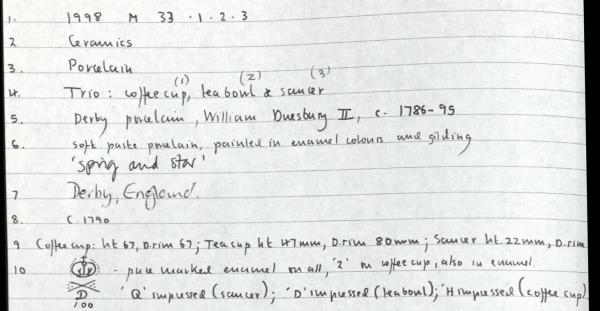 1. 1998 M 33 · 1 · 2 · 3
2 Ceramics
3. Porcelain
(1) (2) (3)
4. Trio: coffee cup, tea bowl & saucer
5. Derby porcelain, William Duesbury II, c. 1786-95
6. soft paste porcelain, painted in enamel colours and gilding
'sprig and star'
7 Derby, England.
8. c. 1790
9 Coffee cup: ht 67, D.rim 67; Teacup ht 47mm, D.rim 80mm; Saucer ht. 22mm, D.rim
10 - marked enamel on all, '2' on coffee cup, also in enamel.
D 'Q' impressed (saucer); 'D' impressed (teabowl); 'H impressed (coffee cup).
100